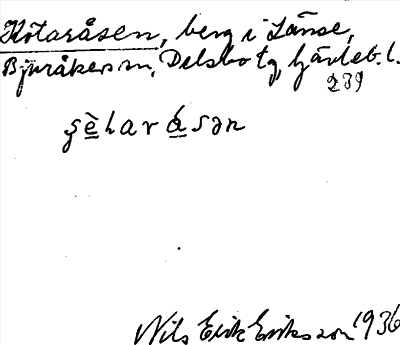 Kötaråsen, berg i Länse,
Bjuråkers sn, Delsbo tg, Gävleb. l.
239
Nils Erik Eriksson 1936